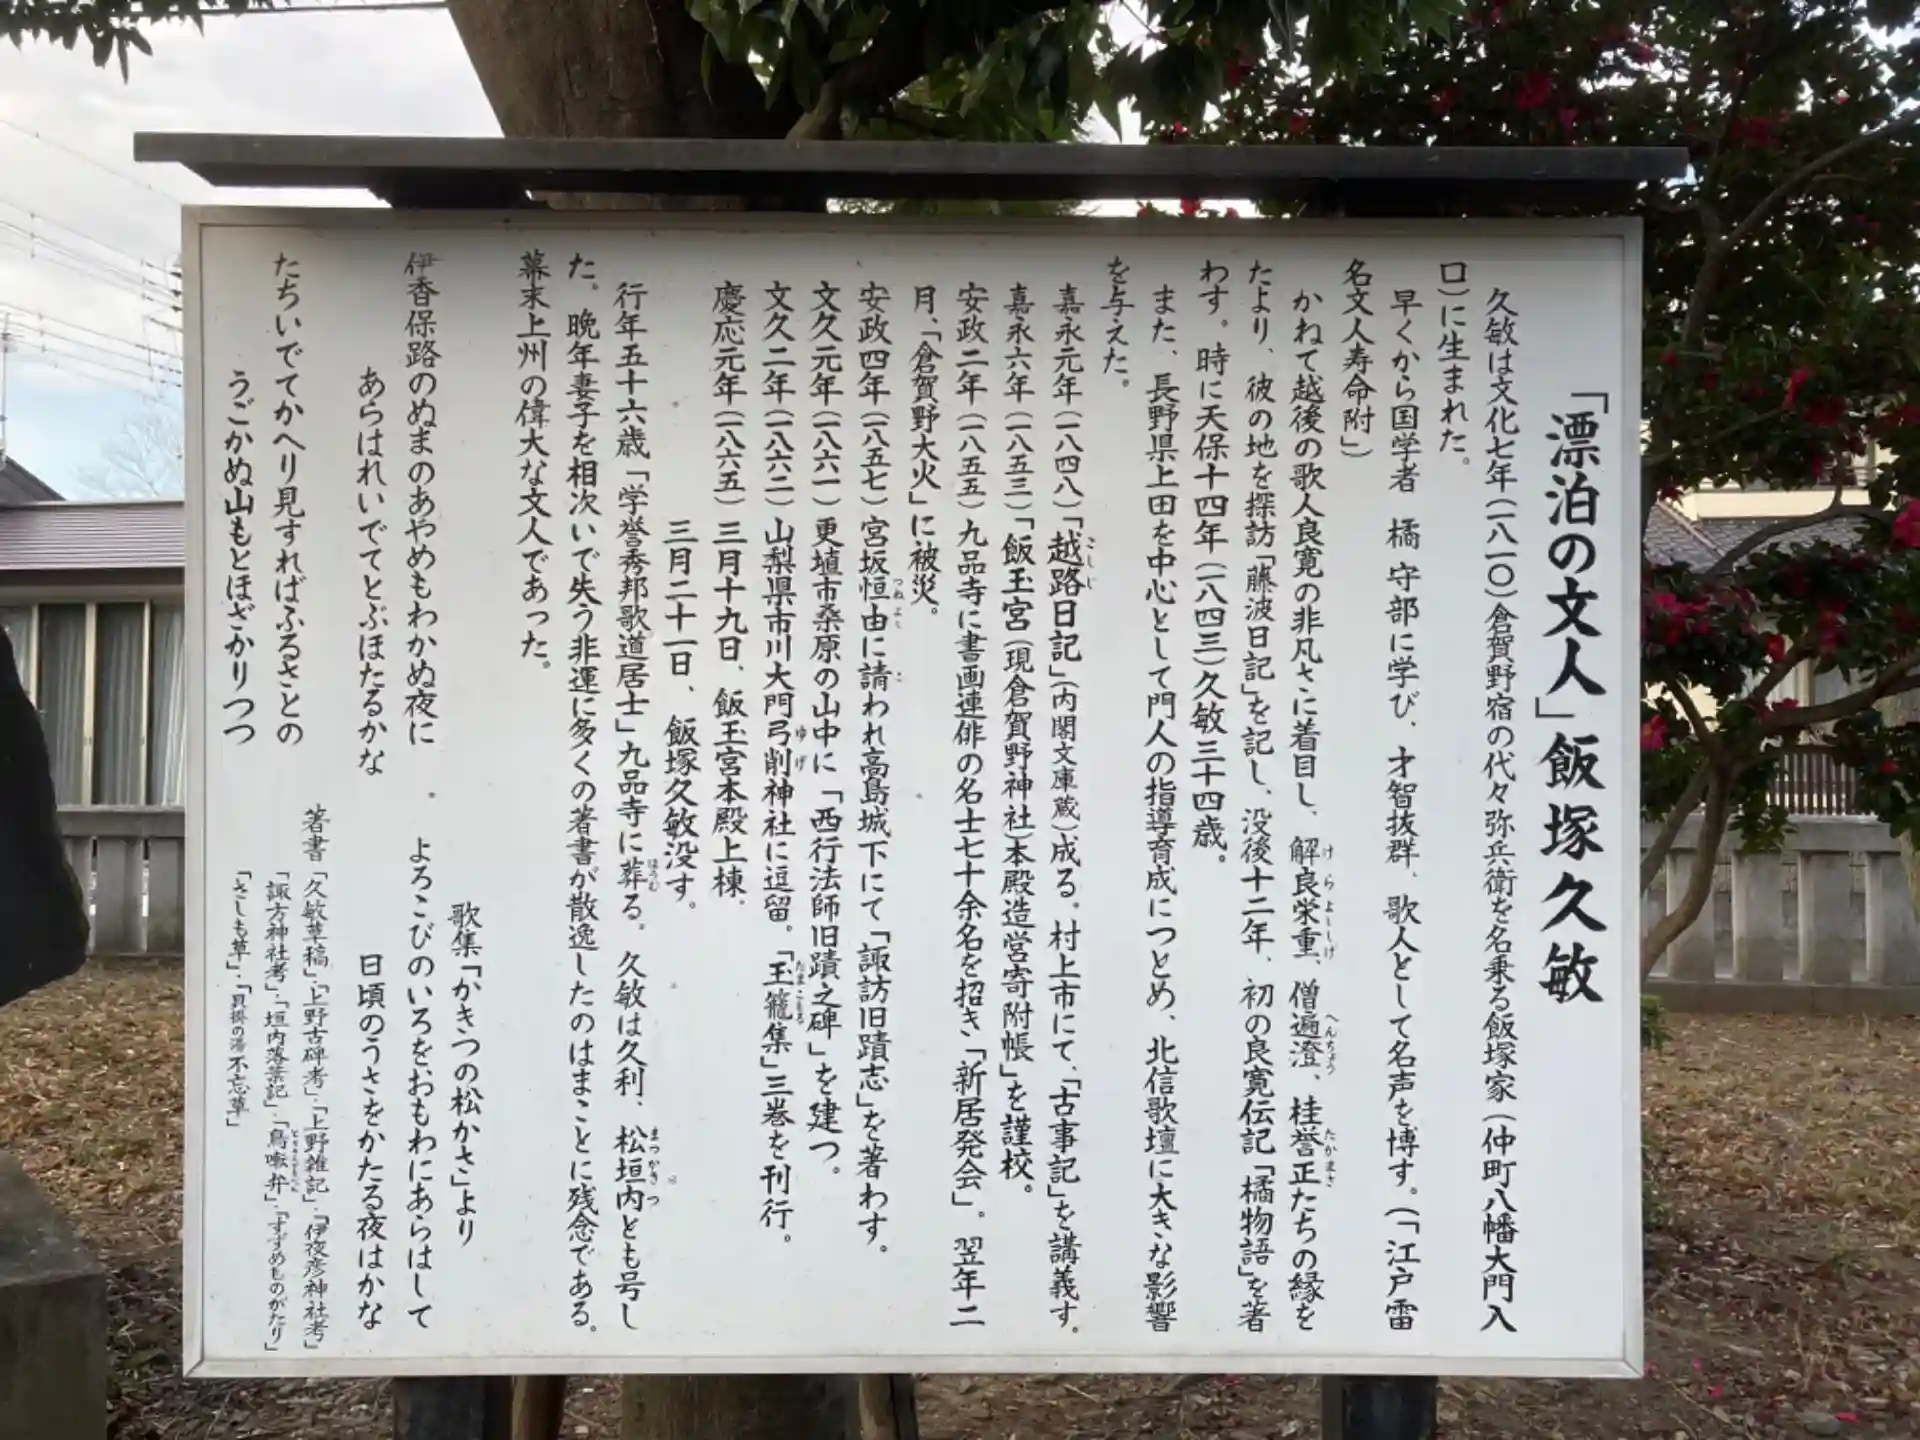 「漂泊の文人」飯塚久敏
久敏は文化七年(一八一〇)倉賀野宿の代々弥兵衛を名乗る飯塚家(仲町八幡大門入
口)に生まれた。
早くから国学者 橘 守部に学び、才智抜群、歌人として名声を博す。(「江戸雷
名文人寿命附」)
かねて越後の歌人良寛の非凡さに着目し、解良栄重、僧遍澄、桂誉正たちの縁を
たより、彼の地を探訪「藤波日記」を記し、没後十二年、初の良寛伝記「橘物語」を著
わす。時に天保十四年(一八四三)久敏三十四歳。
また、長野県上田を中心として門人の指導育成につとめ、北信歌壇に大きな影響
を与えた。
嘉永元年(一八四八)「越路日記」(内閣文庫蔵)成る。村上市にて、「古事記」を講義す。
嘉永六年(一八五三)「飯玉宮(現倉賀野神社)本殿造営寄附帳」を謹校。
安政二年(一八五五)九品寺に書画連俳の名士七十余名を招き「新居発会」。翌年二
月、「倉賀野大火」に被災。
安政四年(一八五七)宮坂恒由に請われ高島城下にて「諏訪旧蹟志」を著わす。
文久元年(一八六一)更埴市桑原の山中に「西行法師旧蹟之碑」を建つ。
文久二年(一八六二)山梨県市川大門弓削神社に逗留。「玉籠集」三巻を刊行。
慶応元年(一八六五)三月十九日、飯玉宮本殿上棟。
三月二十一日、飯塚久敏没す。
行年五十六歳「学誉秀邦歌道居士」九品寺に葬る。久敏は久利、松垣内とも号し
た。晩年妻子を相次いで失う非運に多くの著書が散逸したのはまことに残念である。
幕末上州の偉大な文人であった。
歌集「かきつの松かさ」より
伊香保路のぬまのあやめもわかぬ夜に
あらはれいでてとぶほたるかな
よろこびのいろをおもわにあらはして
日頃のうさをかたる夜はかな
たちいでてかへり見すればふるさとの
うごかぬ山もとほざかりつつ
著書「久敏草稿」.「上野古碑考」.「上野雑記」.「伊夜彦神社考」
「諏方神社考」.「垣内落葉記」.「鳥囀弁」.「すずめものがたり」
「さしも草」.「貝掛の湯不忘草」